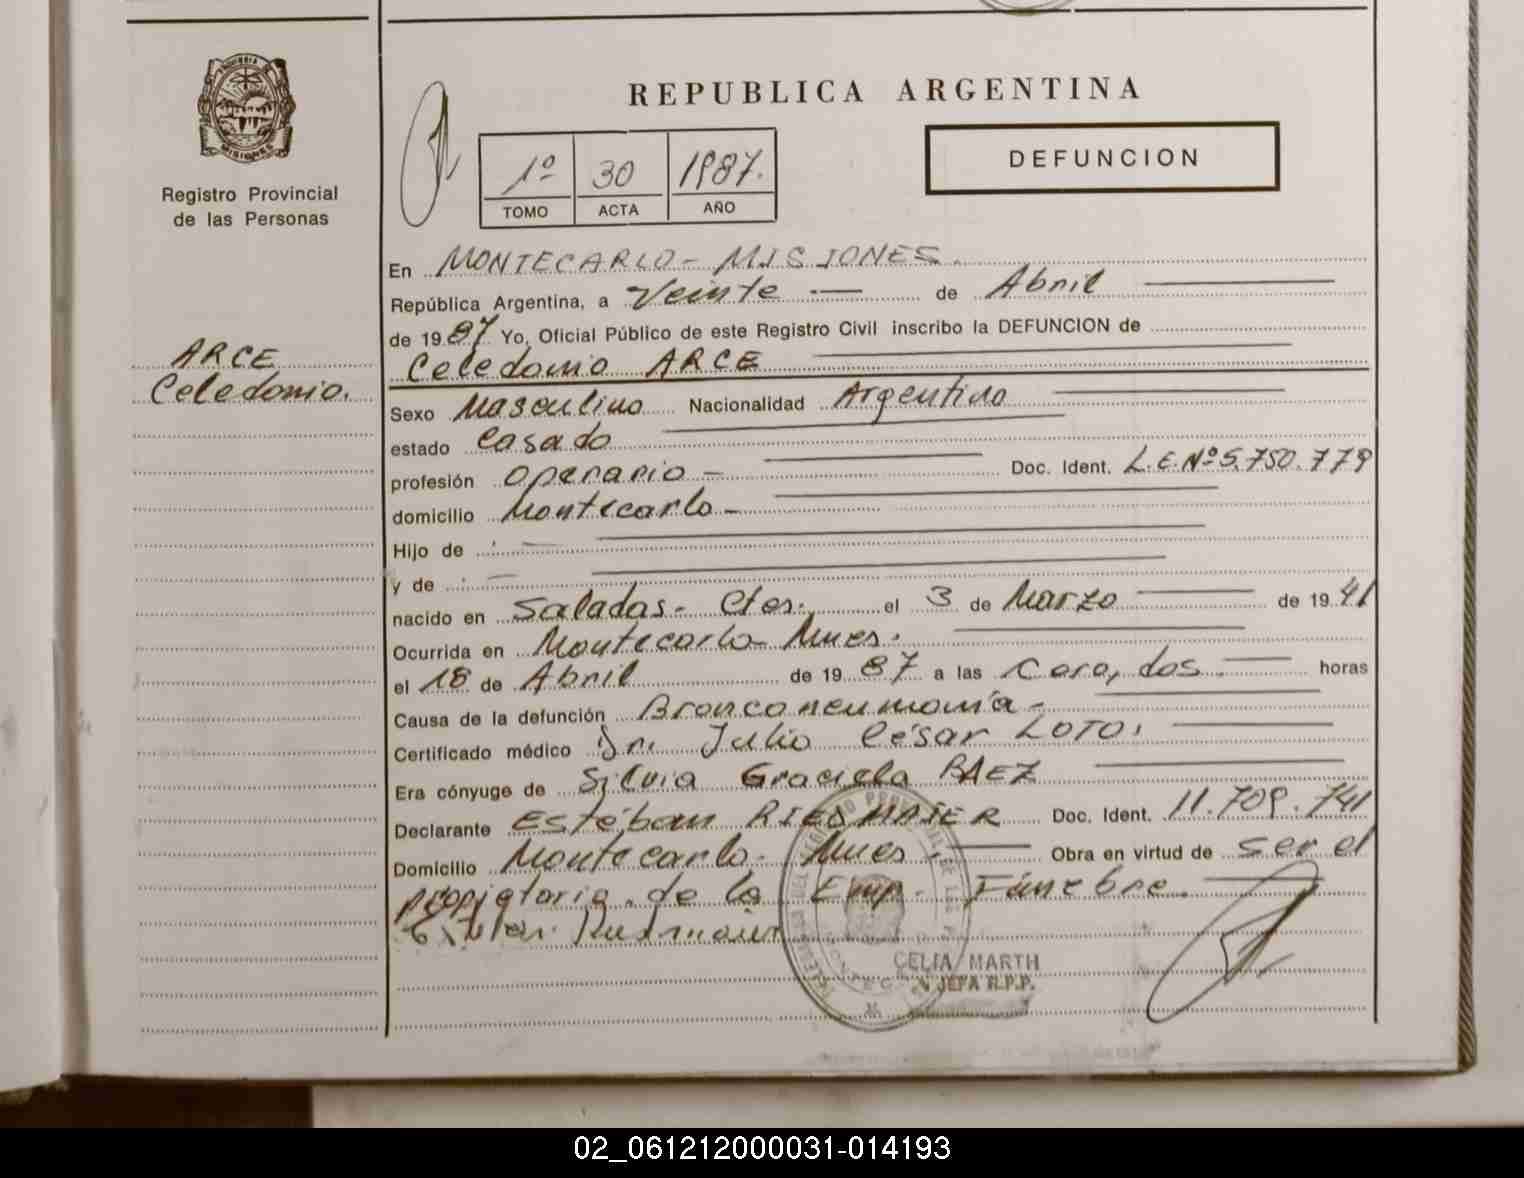 REPUBLICA ARGENTINA
MISIONES
Registro Provincial
de las Personas
1º 30 1987.
TOMO ACTA AÑO
DEFUNCION
ARCE
Celedonio.
En MONTECARLO - MISIONES.
República Argentina, a Veinte — de Abril
de 1987 Yo, Oficial Público de este Registro Civil inscribo la DEFUNCION de
Celedonio ARCE
Sexo Masculino Nacionalidad Argentino
estado Casado
profesión Operario - Doc. Ident. L.E.Nº 5.750.779
domicilio Montecarlo -
Hijo de
y de
nacido en Saladas - Ctes. el 3 de Marzo de 1941
Ocurrida en Montecarlo - Mnes.
el 18 de Abril de 1987 a las Cero, dos. horas
Causa de la defunción Bronconeumonía -
Certificado médico Dr. Julio César LOTO.
Era cónyuge de Silvia Graciela BAEZ
Declarante Estéban RIEDMAIER Doc. Ident. 11.709.741
Domicilio Montecarlo - Mnes. Obra en virtud de ser el
propietario de la Emp. Fúnebre.
CELIA MARTH
JEFA R.P.P.
02_061212000031-014193